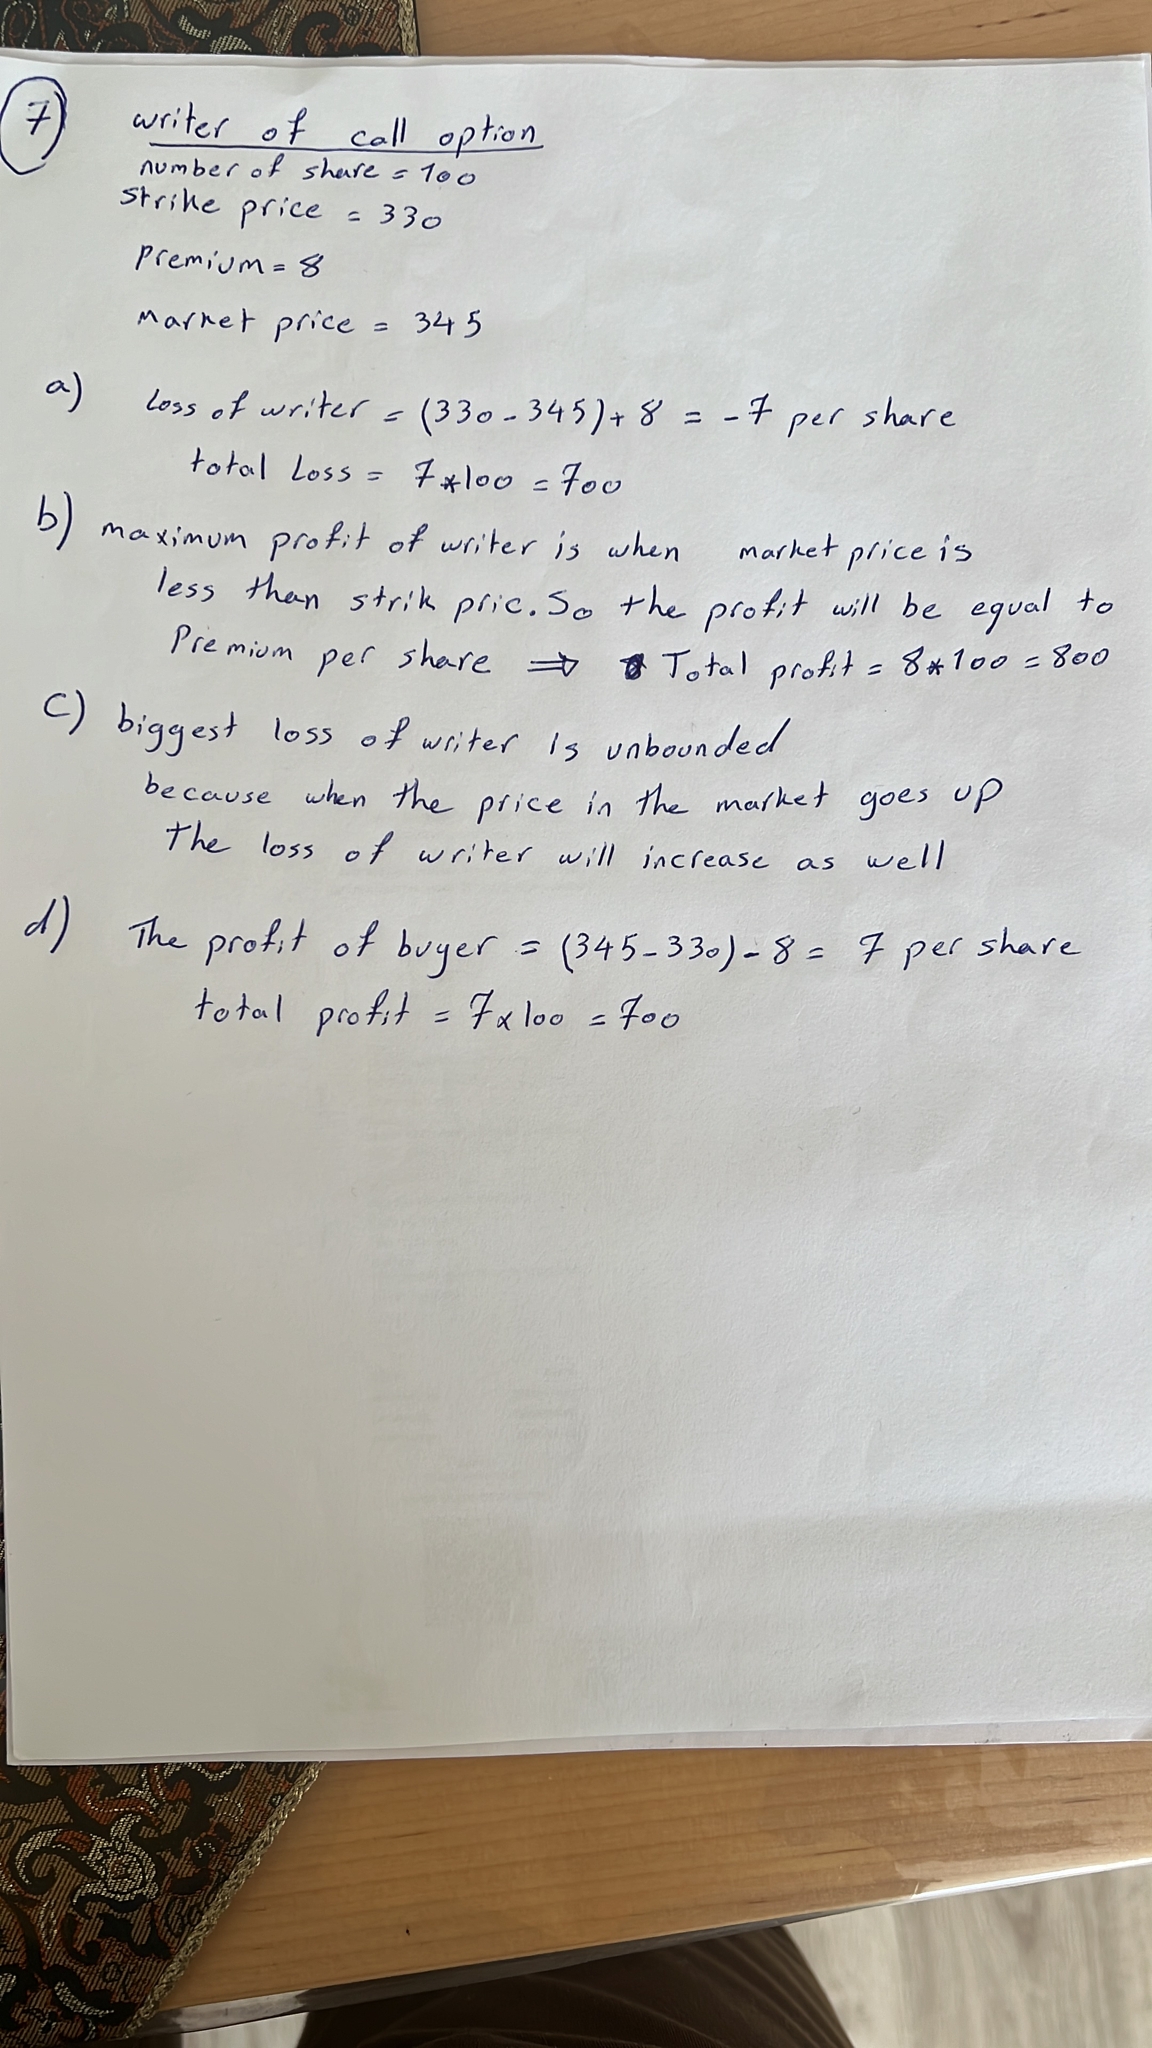 7
writer of call option
number of share = 100
Strike price = 330
Premium = 8
Market price = 345
a) Loss of writer = (330 - 345) + 8 = -7 per share
total Loss = 7 * 100 = 700
b) maximum profit of writer is when market price is
less than strik pric. So the profit will be equal to
Premium per share ⇒ Total profit = 8 * 100 = 800
C) biggest loss of writer is unbounded
because when the price in the market goes up
The loss of writer will increase as well
d) The profit of buyer = (345 - 330) - 8 = 7 per share
total profit = 7 x 100 = 700